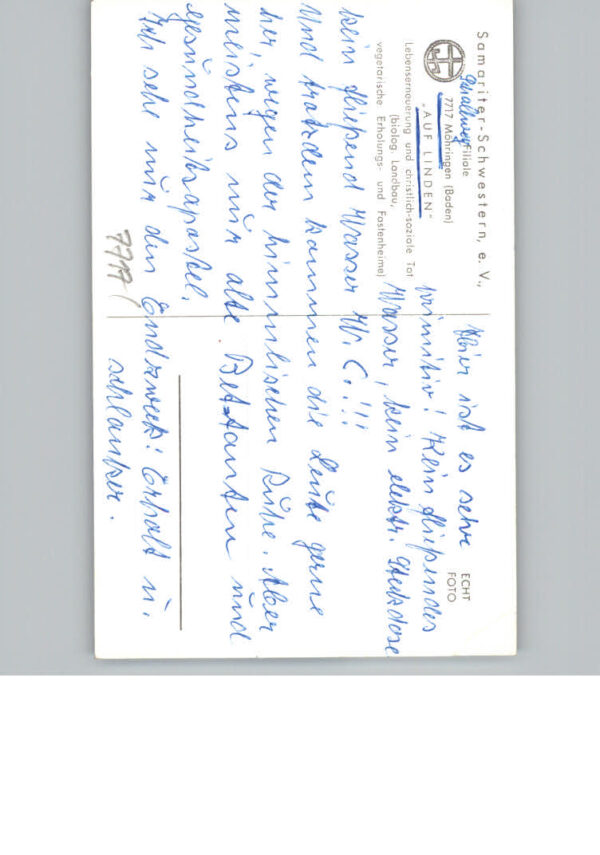 Samariter-Schwestern, e. V.,
Filiale
7717 Möhringen (Baden)
„AUF LINDEN"
Lebenserneuerung und christlich-soziale Tat
(biolog. Landbau,
vegetarische Erholungs- und Fastenheime)
ECHT
FOTO
Hier ist es sehr
primitiv! Kein fließendes
Wasser, kein elektr. Steckdose
kein fließend Wasser W. C.!!!
Und trotzdem kommen die Leute gerne
her, wegen der himmlischen Ruhe. Aber
meistens nur alte Bet-tanten und
Gesundheitsapostel.
Ich sehe nur den Endzweck! Erholt u.
schlanker.
7717/